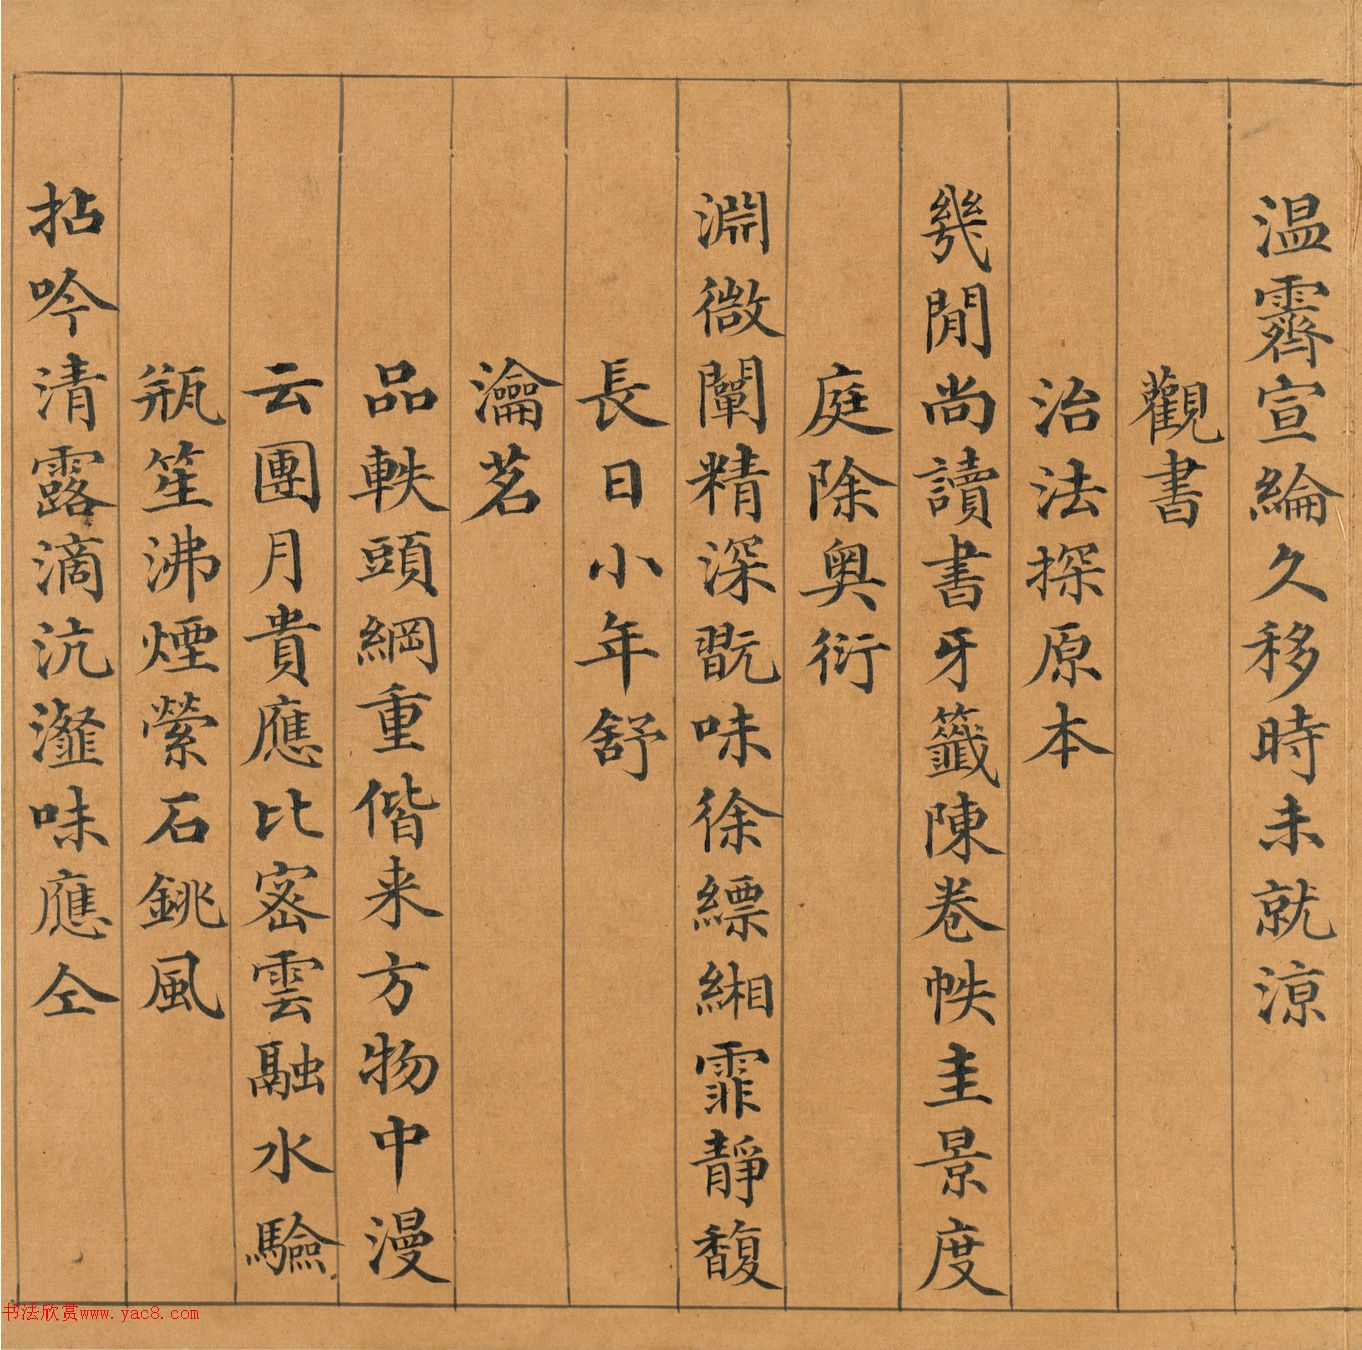 温霽宣綸久移時未就涼
觀書
治法探原本
幾閒尚讀書牙籤陳卷帙圭景度
庭除奥衍
淵微闡精深翫味徐縹緗霏靜馥
長日小年舒
瀹茗
品軼頭綱重偕来方物中漫
云團月貴應比密雲融水驗
瓶笙沸煙縈石銚風
拈吟清露滴沆瀣味應仝
书法欣赏www.yac8.com